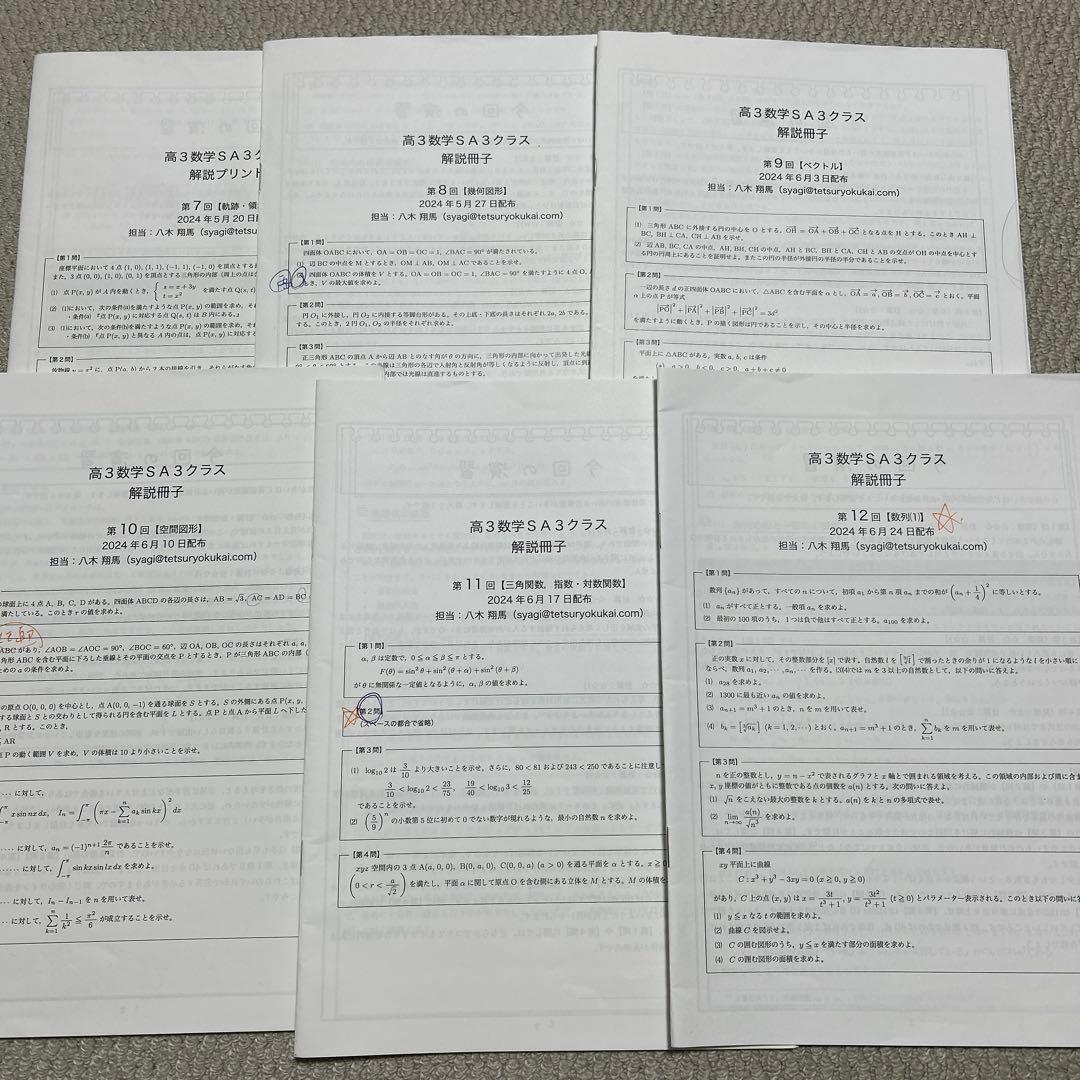 高３数学ＳＡ３ク
解説プリント
第７回【軌跡・領
2024年5月20日
担当：八木 翔馬（syagi@tetsuryok
【第１問】
座標平面において4点(1, 0), (1, 1), (−1, 1), (−1, 0)を頂点とする
また, 3点(0, 0), (1, 0), (0, 1)を頂点とする三角形の内部（周上の点は
(1) 点P(x, y)がA内を動くとき, { s = x + 3y
t = x²
を満たす点Q(s, t)
(2) (1)において, 次の条件(a)を満たすような点P(x, y)の範囲を求め, それ
・条件(a)『点P(x, y)に対応する点Q(s, t)はB内にある。』
(3) (1)において, 次の条件(b)を満たすような点P(x, y)の範囲を求め, それ
・条件(b)『点P(x, y)と異なるA内の点は, 点P(x, y)に対応する
【第２問】
放物線y = x²に, 点P(a, b)から2本の接線を引き,
高３数学ＳＡ３クラス
解説冊子
第８回【幾何図形】
2024年5月27日配布
担当：八木 翔馬（syagi@tetsuryokukai.com）
【第１問】
四面体OABCにおいて, OA = OB = OC = 1, ∠BAC = 90° が満たされている。
(1) 辺BCの中点をMとするとき, OM⊥AB, OM⊥ACであることを示せ。
(2) 四面体OABCの体積をVとする。OA = OB = OC = 1, ∠BAC = 90° を満たすように4点O,
き, Vの最大値を求めよ。
【第２問】
円O₁に外接し, 円O₂に内接する等脚台形がある。その上底・下底の長さはそれぞれ2a, 2bである。
する。このとき, 2円O₁, O₂の半径をそれぞれ求めよ。
【第３問】
正三角形ABCの頂点Aから辺ABとのなす角がθの方向に, 三角形の内部に向かって出発した光線
線は三角形の各辺で入射角と反射角が等しくなるように反射し, 頂点に到
内部では光線は直進するものとする。
高３数学ＳＡ３クラス
解説冊子
第９回【ベクトル】
2024年6月3日配布
担当：八木 翔馬（syagi@tetsuryokukai.com）
【第１問】
(1) 三角形ABCに外接する円の中心をOとする。OH = OA + OB + OCとなる点をHとする。このときAH⊥
BC, BH⊥CA, CH⊥ABを示せ。
(2) 辺AB, BC, CAの中点, AH, BH, CHの中点, AHとBC, BHとCA, CHとABの交点がOHの中点を中心とす
る円の円周上にあることを証明せよ。またこの円の半径が外接円の半径の半分であることを示せ。
【第２問】
一辺の長さdの正四面体OABCにおいて, △ABCを含む平面をαとし, OA = a, OB = b, OC = c とおく。平面
α上の点Pが等式
|PO|² + |PA|² + |PB|² + |PC|² = 3d²
を満たすように動くとき, Pの描く図形は円であることを示し, その中心と半径を求めよ。
【第３問】
平面上に△ABCがある。実数a, b, cは条件
(∗) a > 0, b < 0, c > 0, a + b + c ≠ 0
高３数学ＳＡ３クラス
解説冊子
第10回【空間図形】
2024年6月10日配布
担当：八木 翔馬（syagi@tetsuryokukai.com）
球面上に4点A, B, C, Dがある。四面体ABCDの各辺の長さは, AB = √3, AC = AD = BC
満たしている。このときrの値を求めよ。
ABCがあり, ∠AOB = ∠AOC = 90°, ∠BOC = 60°, 辺OA, OB, OCの長さはそれぞれa, a,
角形ABCを含む平面に下ろした垂線とその平面の交点をPとするとき, Pが三角形ABCの内部（
ためのaの条件を求めよ。
の原点O(0, 0, 0)を中心とし, 点A(0, 0, −1)を通る球面をSとする。Sの外側にある点P(x, y,
する球面とSとの交わりとして得られる円を含む平面をLとする。点Pと点Aから平面Lへ下した
, Rとする。このとき,
≦ AR
点Pの動く範囲Vを求め, Vの体積は10より小さいことを示せ。
に対して,
x sin nx dx, Iₙ = ∫_{−π}^{π} (πx − Σ_{k=1}^{n} aₖ sin kx)² dx
に対して, aₙ = (−1)ⁿ⁺¹ 2π/n であることを示せ。
に対して, ∫_{−π}^{π} sin kx sin lx dx を求めよ。
に対して, Iₙ − Iₙ₋₁ を n を用いて表せ。
に対して, Σ_{k=1}^{n} 1/k² ≦ π²/6 が成立することを示せ。
高３数学ＳＡ３クラス
解説冊子
第11回【三角関数，指数・対数関数】
2024年6月17日配布
担当：八木 翔馬（syagi@tetsuryokukai.com）
【第１問】
α, βは定数で, 0 ≦ α ≦ β ≦ π とする。
F(θ) = sin² θ + sin² (θ + α) + sin² (θ + β)
がθに無関係な一定値となるように, α, βの値を求めよ。
【第２問】
(スペースの都合で省略)
【第３問】
(1) log₁₀ 2 は 3/10 より大きいことを示せ。さらに, 80 < 81 および 243 < 250 であることに注意し
3/10 < log₁₀ 2 < 23/75, 19/40 < log₁₀ 3 < 12/25
であることを示せ。
(2) (5/9)ⁿ の小数第5位に初めて0でない数字が現れるような, 最小の自然数nを求めよ。
【第４問】
xyz空間内の3点A(a, 0, 0), B(0, a, 0), C(0, 0, a) (a > 0)を通る平面をαとする。x ≧ 0
(0 < r < a/√2) を満たし, 平面αに関して原点Oを含む側にある立体をMとする。Mの体積を
高３数学ＳＡ３クラス
解説冊子
第12回【数列(1)】
2024年6月24日配布
担当：八木 翔馬（syagi@tetsuryokukai.com）
【第１問】
数列{aₙ}があって, すべてのnについて, 初項a₁から第n項aₙまでの和が(aₙ + 1/4)²に等しいとする。
(1) aₙがすべて正とする。一般項aₙを求めよ。
(2) 最初の100項のうち, 1つは負で他はすべて正とする。a₁₀₀を求めよ。
【第２問】
正の実数xに対して, その整数部分を[x]で表す。自然数lを[∛l]で割ったときの余りが1になるようなlを小さい順に
ならべ, 数列a₁, a₂, ⋯, aₙ, ⋯を作る。(3)(4)ではmを3以上の自然数として, 以下の問いに答えよ。
(1) a₂₈を求めよ。
(2) 1300に最も近いaₙの値を求めよ。
(3) aₙ₊₁ = m³ + 1のとき, nをmを用いて表せ。
(4) bₖ = [∛aₖ] (k = 1, 2, ⋯)とおく。aₙ₊₁ = m³ + 1のとき, Σ_{k=1}^{n} bₖをmを用いて表せ。
【第３問】
nを正の整数とし, y = n − x²で表されるグラフとx軸とで囲まれる領域を考える。この領域の内部および周に含ま
x, y座標の値がともに整数である点の個数をa(n)とする。次の問いに答えよ。
(1) √nをこえない最大の整数をkとする。a(n)をkとnの多項式で表せ。
(2) lim_{n→∞} a(n)/√n³ を求めよ。
【第４問】
xy平面上に曲線
C : x³ + y³ − 3xy = 0 (x ≧ 0, y ≧ 0)
があり, C上の点(x, y)は x = 3t/(t³ + 1), y = 3t²/(t³ + 1) (t ≧ 0)とパラメーター表示される。このとき以下の問いに答
(1) y ≦ xなるtの範囲を求めよ。
(2) 曲線Cを図示せよ。
(3) Cの囲む図形のうち, y ≦ xを満たす部分の面積を求めよ。
(4) Cの囲む図形の面積を求めよ。